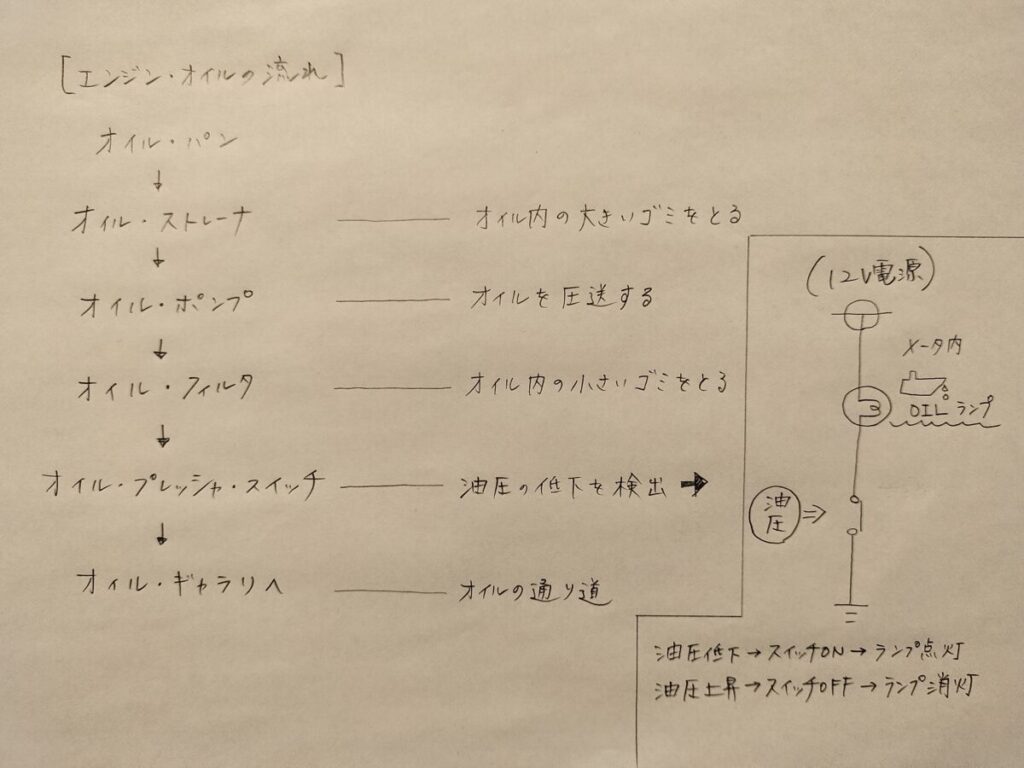 [エンジン・オイルの流れ]
オイル・パン
↓
オイル・ストレーナ ―― オイル内の大きいゴミをとる
↓
オイル・ポンプ ―― オイルを圧送する
↓
オイル・フィルタ ―― オイル内の小さいゴミをとる
↓
オイル・プレッシャ・スイッチ ―― 油圧の低下を検出 →
↓
オイル・ギャラリへ ―― オイルの通り道
(12V電源)
メータ内
OILランプ
油圧 ⇒
油圧低下→スイッチON→ランプ点灯
油圧上昇→スイッチOFF→ランプ消灯